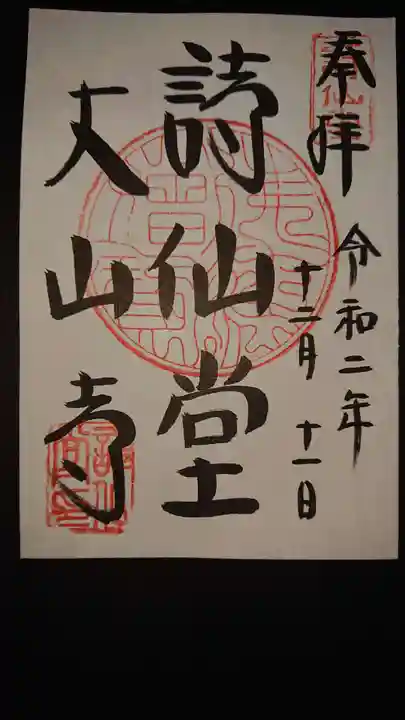 奉拝
令和二年
十二月 十一日
詩仙堂
丈山寺